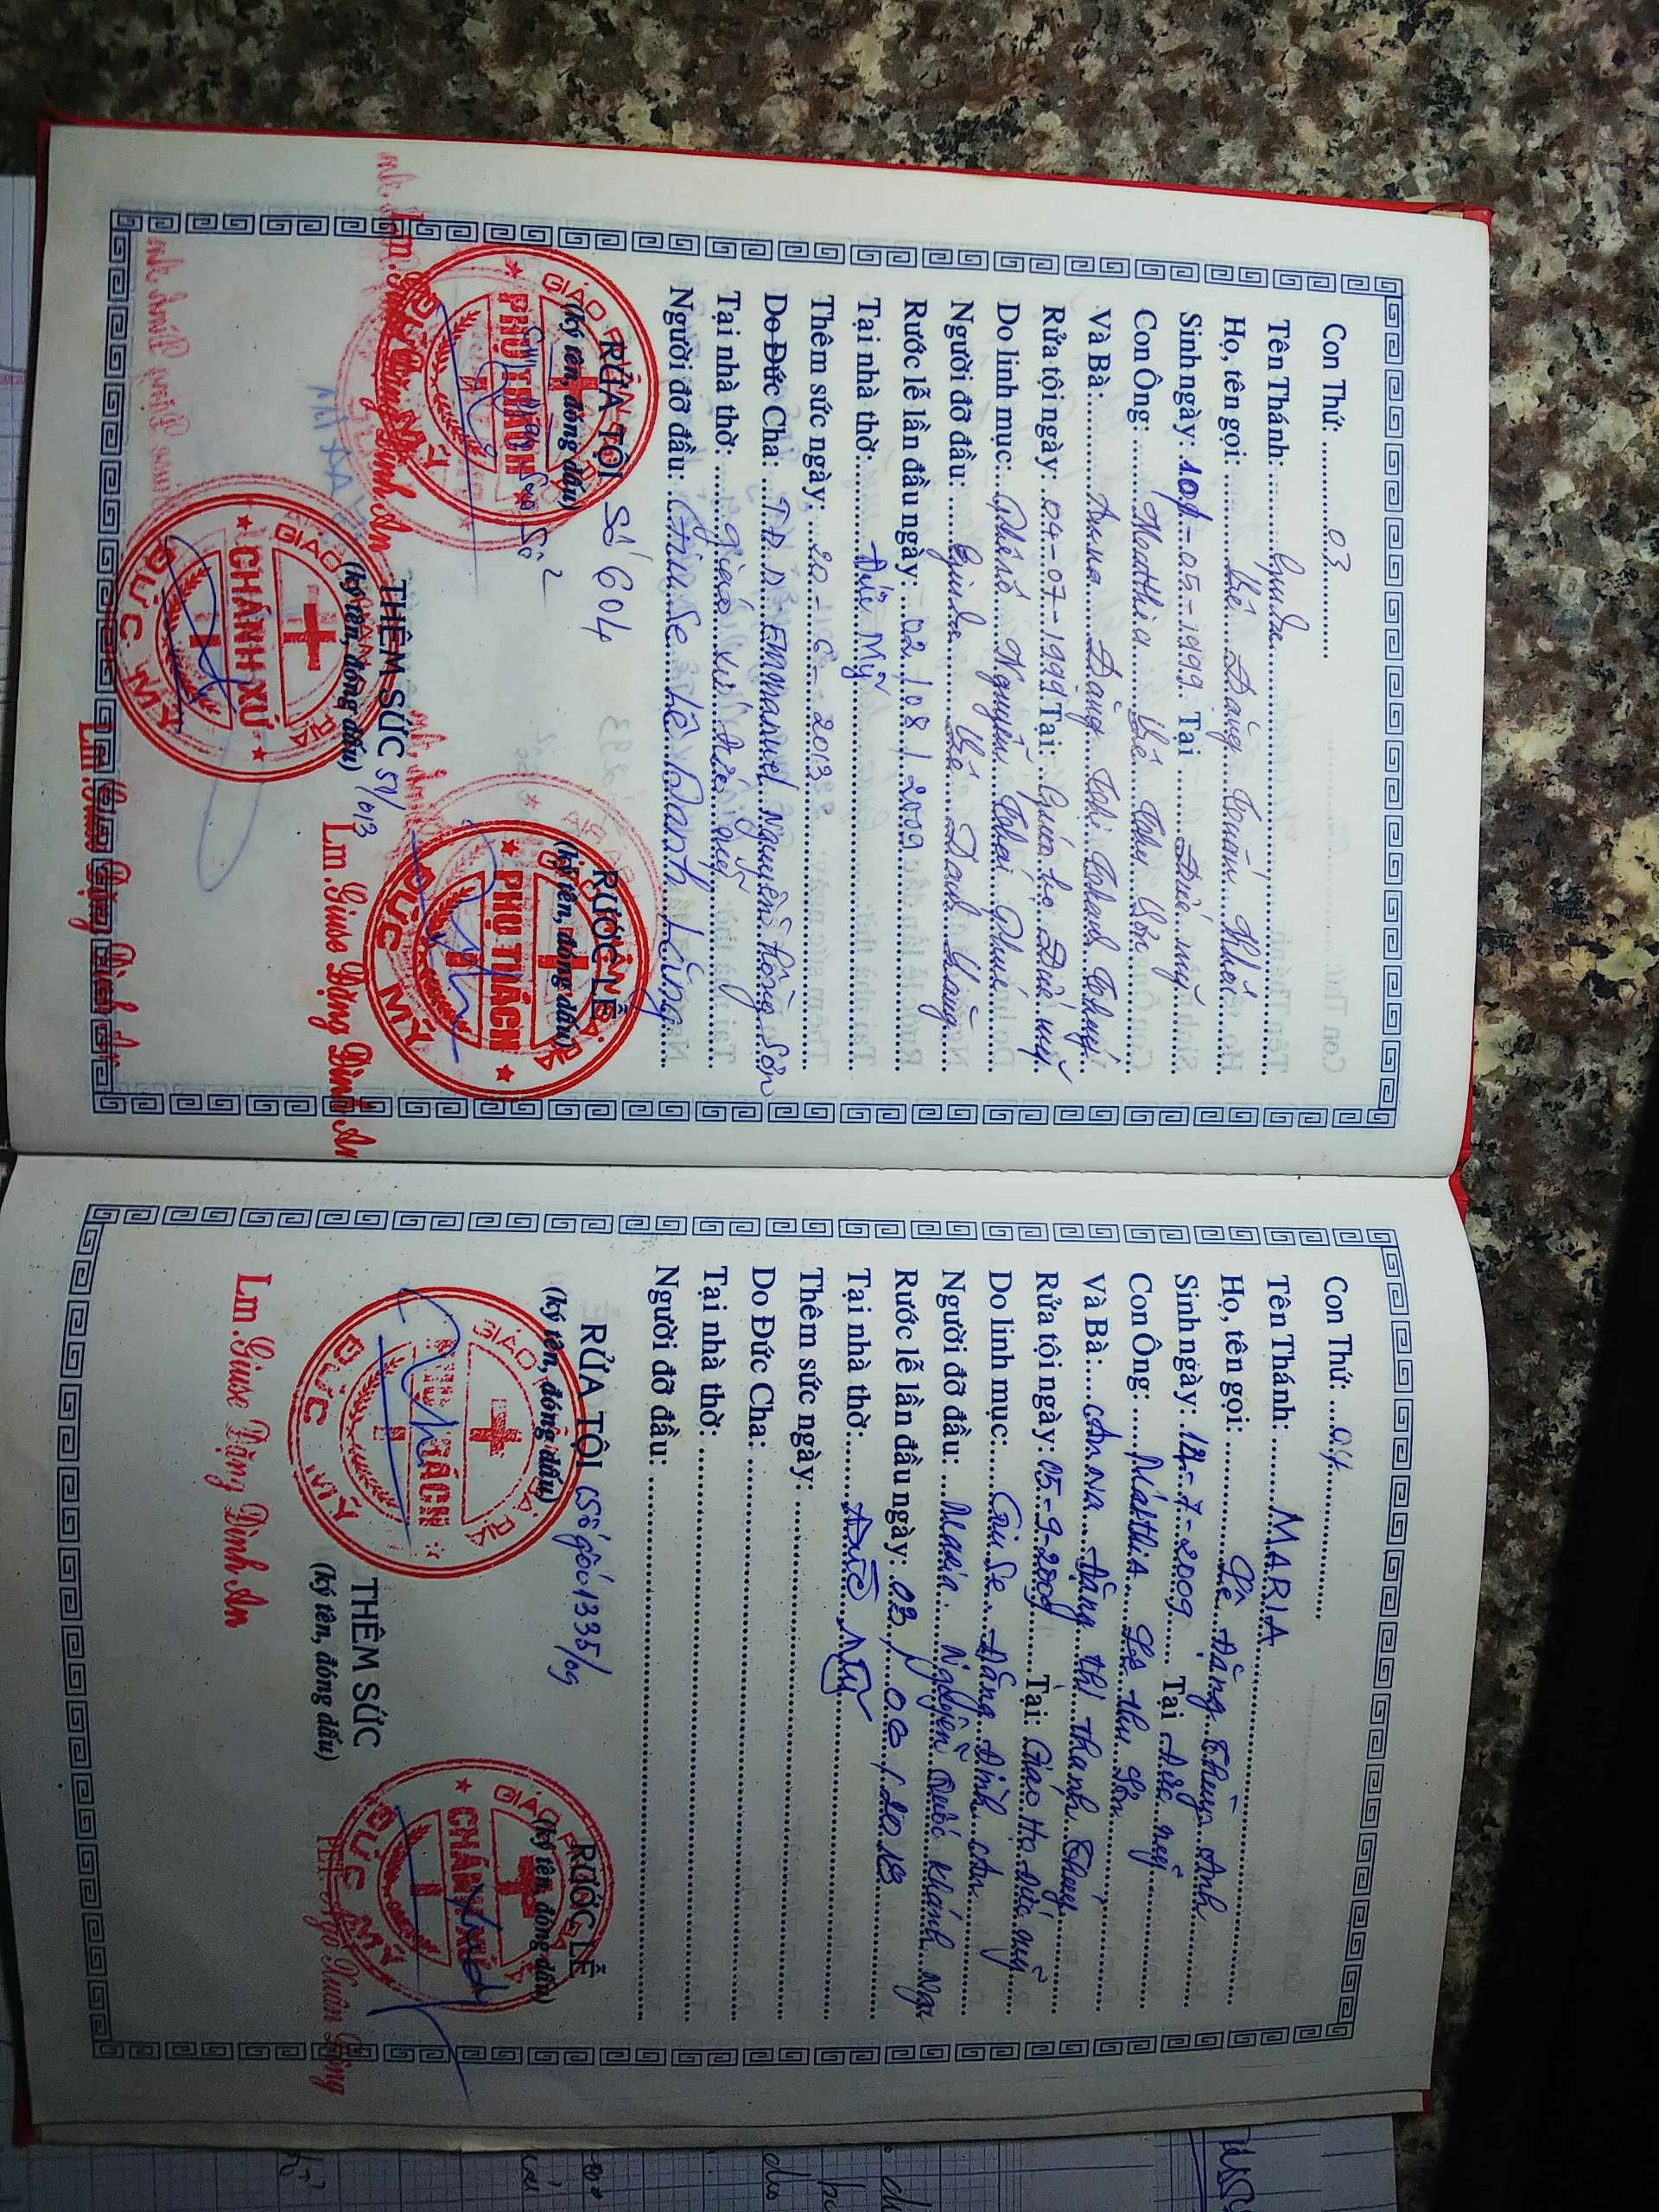 Con Thứ: 03
Tên Thánh: Giuse
Họ, tên gọi: Lê Đăng Tuấn Khôi
Sinh ngày: 10/-05-1999 Tại Đức mỹ
Con Ông: Matthia Lê Thu Sơn
Và Bà: Anna Đăng Thị Thanh Thuý
Rửa tội ngày: 04-07-1999 Tại: Giáo họ Đức mỹ
Do linh mục: Phêrô Nguyễn Thái Phúc
Người đỡ đầu: Giuse Lê Danh Lăng
Rước lễ lần đầu ngày: 02/08/2009
Tại nhà thờ: Đức Mỹ
Thêm sức ngày: 20-6-2013
Do Đức Cha: T.Đ.D. Emmanuel Nguyễn hồng Sơn
Tại nhà thờ: giáo xứ Đức mỹ
Người đỡ đầu: Giuse Lê Danh Lăng
RỬA TỘI Số 604
(ký tên, đóng dấu)
Sổ Số 2
GIÁO PHẬN BÀ RỊA
PHỤ TRÁCH
ĐỨC MỸ
Lm.Giuse Đặng Đình An
RƯỚC LỄ
(ký tên, đóng dấu)
GIÁO PHẬN BÀ RỊA
PHỤ TRÁCH
ĐỨC MỸ
Lm.Giuse Đặng Đình An
THÊM SỨC 51/013
(ký tên, đóng dấu)
GIÁO PHẬN BÀ RỊA
CHÁNH XỨ
ĐỨC MỸ
Lm.Giuse Đặng Đình An
Con Thứ: 04
Tên Thánh: MARIA
Họ, tên gọi: Lê Đặng Thùy Anh
Sinh ngày: 14-7-2009 Tại Đức mỹ
Con Ông: Matthia Lê Thu Sơn
Và Bà: Anna Đặng thị Thanh Thúy
Rửa tội ngày: 05-9-2009 Tại: Giáo Họ Đức mỹ
Do linh mục: Giuse Đặng Đình An
Người đỡ đầu: Maria Nguyễn Quốc Khánh Nga
Rước lễ lần đầu ngày: 03/06/2018
Tại nhà thờ: Đức Mỹ
Thêm sức ngày:
Do Đức Cha:
Tại nhà thờ:
Người đỡ đầu:
RỬA TỘI Số gốc 1335/09
(ký tên, đóng dấu)
GIÁO PHẬN BÀ RỊA
PHỤ TRÁCH
ĐỨC MỸ
Lm.Giuse Đặng Đình An
RƯỚC LỄ
(ký tên, đóng dấu)
GIÁO PHẬN BÀ RỊA
CHÁNH XỨ
ĐỨC MỸ
PET. Ngô Xuân Đông
THÊM SỨC
(ký tên, đóng dấu)